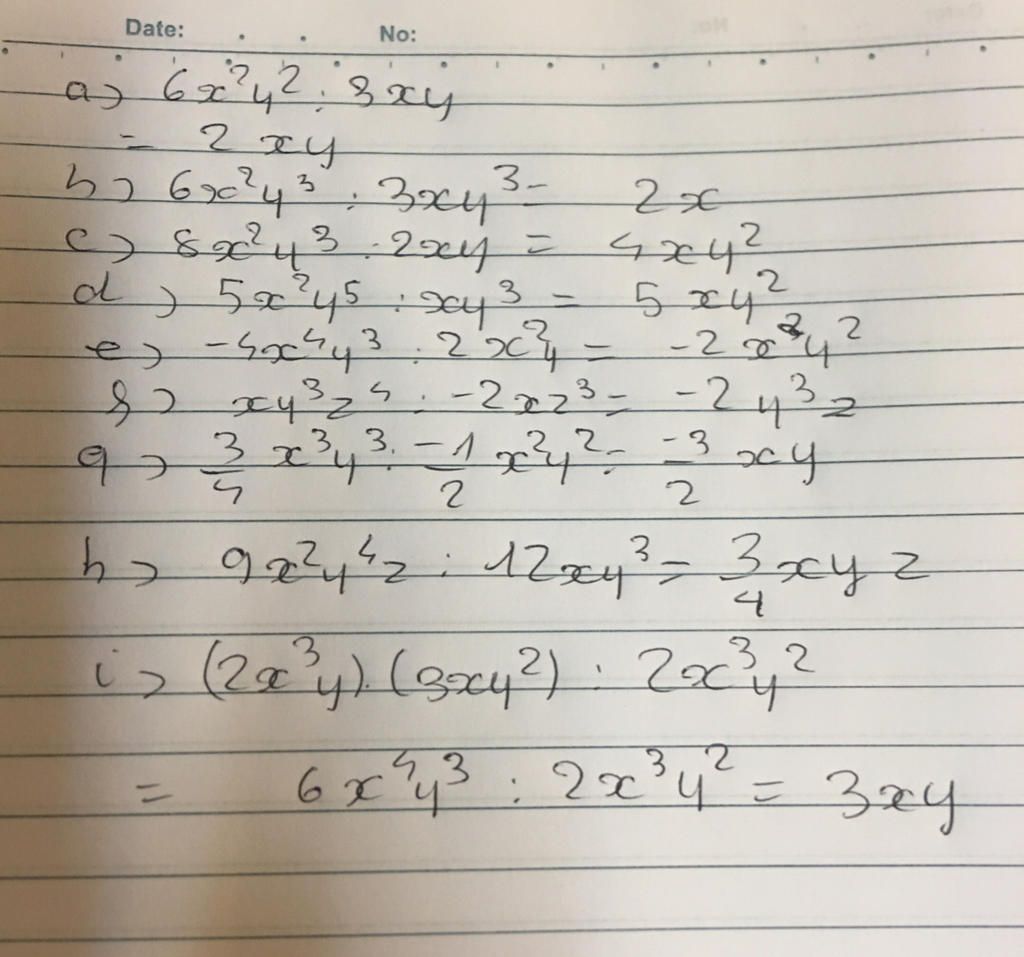 Date: No:
a) 6x²y² : 3xy
= 2xy
b) 6x²y³ : 3xy³ = 2x
c) 8x²y³ : 2xy = 4xy²
d) 5x²y⁵ : xy³ = 5xy²
e) -4x⁴y³ : 2x²y = -2x²y²
f) xy³z⁴ : -2xz³ = -2y³z
g) 3/4 x³y³ : -1/2 x²y² = -3/2 xy
h) 9x²y⁴z : 12xy³ = 3/4 xyz
i) (2x³y).(3xy²) : 2x³y²
= 6x⁴y³ : 2x³y² = 3xy